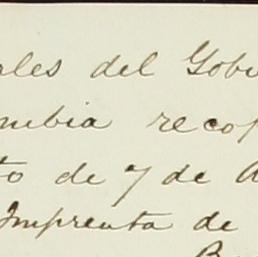 ales del Gobi
mbia recop
to de 7 de A
Imprenta de
B